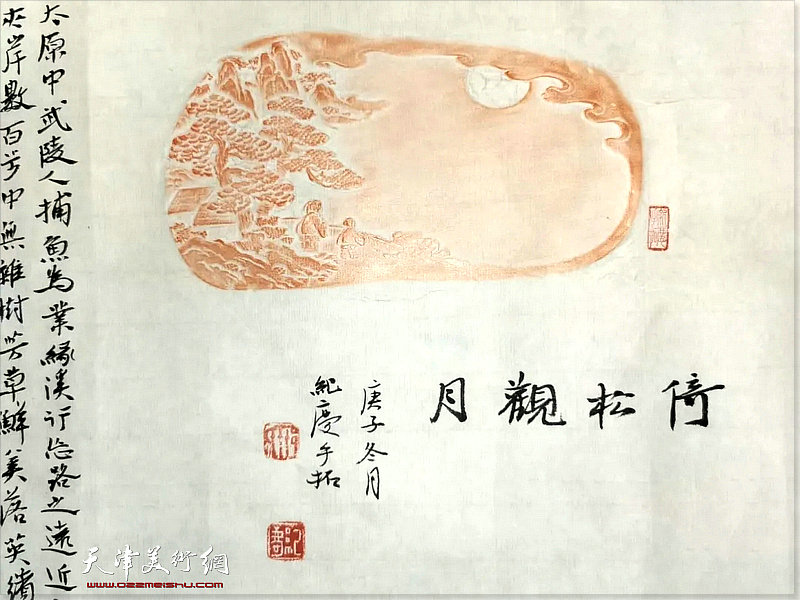 倚松觀月
庚子冬月
紀慶手拓
太原中武陵人捕魚為業緣溪行忘路之遠近
夾岸數百步中無雜樹芳草鮮美落英繽
天津美術網
www.022meishu.com